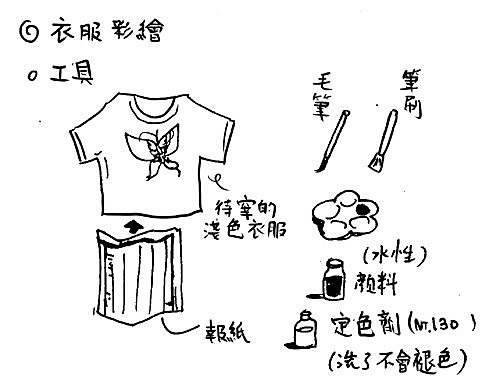 ◎ 衣服彩繪
○ 工具
毛筆
筆刷
待穿的
淺色衣服
(水性)
顏料
報紙
定色劑(NT.130)
(洗了不會褪色)